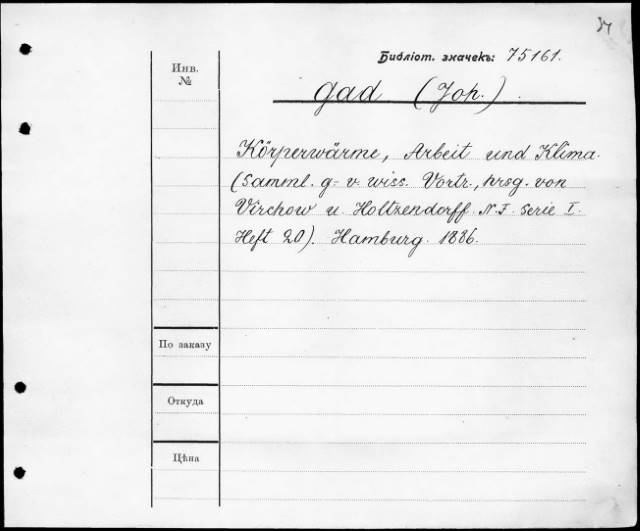 Библіот. значекъ: 75161.
Инв.
№
Gad (Joh.).
Körperwärme, Arbeit und Klima.
(Samml. g.- v. wiss. Vortr., hrsg. von
Virchow u. Holtzendorff. N. F. Serie I.
Heft 20). Hamburg. 1886.
По заказу
Откуда
Цѣна